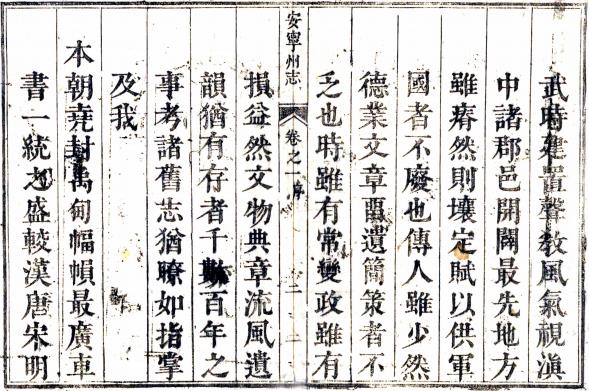 武時建置聲教風氣視滇
中諸郡邑開闢最先地方
雖瘠然則壤定賦以供軍
國者不廢也傳人雖少然
德業文章畱遺簡策者不
乏也時雖有常變政雖有
安寧州志
卷之一序
二
損益然文物典章流風遺
韻猶有存者千數百年之
事考諸舊志猶瞭如指掌
及我
本朝堯封禹甸幅幀最廣車
書一統之盛較漢唐宋明